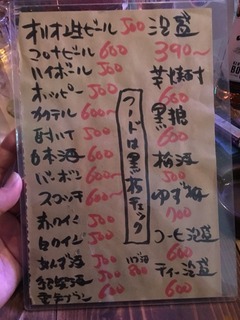 オリオン生ビール 500
コロナビール 600
ハイボール 500
ホッピー 500
カクテル 600〜
酎ハイ 500
日本酒 600
バーボン 600〜
スコッチ 600〜
赤ワイン 500
白ワイン 500
あんず酒 500
電気ブラン 600
フードは黒板チェック
泡盛
390〜
芋焼酎
600
黒糖
600
梅酒
500
ゆず梅
700
コーヒー泡盛
600
ティー泡盛
600